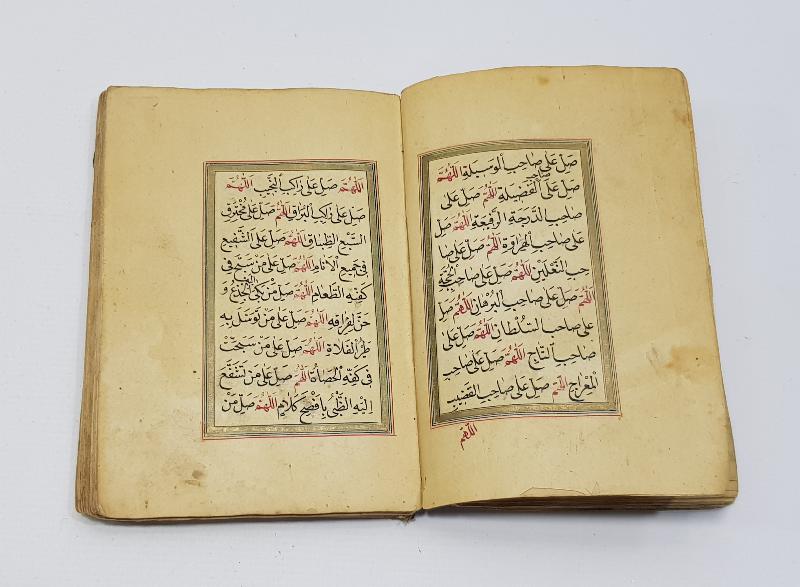 صَلِّ عَلَى صَاحِبِ الْوَسِيلَةِ اَللّٰهُمَّ
صَلِّ عَلَى صَاحِبِ الْفَضِيلَةِ اَللّٰهُمَّ صَلِّ عَلَى
صَاحِبِ الدَّرَجَةِ الرَّفِيعَةِ اَللّٰهُمَّ صَلِّ
عَلَى صَاحِبِ الْهِرَاوَةِ اَللّٰهُمَّ صَلِّ عَلَى صَا
حِبِ النَّعْلَيْنِ اَللّٰهُمَّ صَلِّ عَلَى صَاحِبِ الْحُجَّةِ
اَللّٰهُمَّ صَلِّ عَلَى صَاحِبِ الْبُرْهَانِ اَللّٰهُمَّ صَلِّ
عَلَى صَاحِبِ السُّلْطَانِ اَللّٰهُمَّ صَلِّ عَلَى
صَاحِبِ التَّاجِ اَللّٰهُمَّ صَلِّ عَلَى صَاحِبِ
الْمِعْرَاجِ اَللّٰهُمَّ صَلِّ عَلَى صَاحِبِ الْقَضِيبِ
اللّٰهُمَّ
اَللّٰهُمَّ صَلِّ عَلَى رَاكِبِ النَّجِيبِ اَللّٰهُمَّ
صَلِّ عَلَى رَاكِبِ الْبُرَاقِ اَللّٰهُمَّ صَلِّ عَلَى مُخْتَرِقِ
السَّبْعِ الطِّبَاقِ اَللّٰهُمَّ صَلِّ عَلَى الشَّفِيعِ
فِي جَمِيعِ الْاَنَامِ اَللّٰهُمَّ صَلِّ عَلَى مَنْ سَبَّحَ فِي
كَفِّهِ الطَّعَامُ اَللّٰهُمَّ صَلِّ مَنْ بَكَى اِلَيْهِ الْجِذْعُ وَ
حَنَّ لِفِرَاقِهِ اَللّٰهُمَّ صَلِّ عَلَى مَنْ تَوَسَّلَ بِهِ
طَيْرُ الْفَلَاةِ اَللّٰهُمَّ صَلِّ عَلَى مَنْ سَبَّحَتْ
فِي كَفِّهِ الْحَصَاةُ اَللّٰهُمَّ صَلِّ عَلَى مَنْ تَشَفَّعَ
اِلَيْهِ الظَّبْيُ بِاَفْصَحِ كَلَامٍ اَللّٰهُمَّ صَلِّ مَنْ